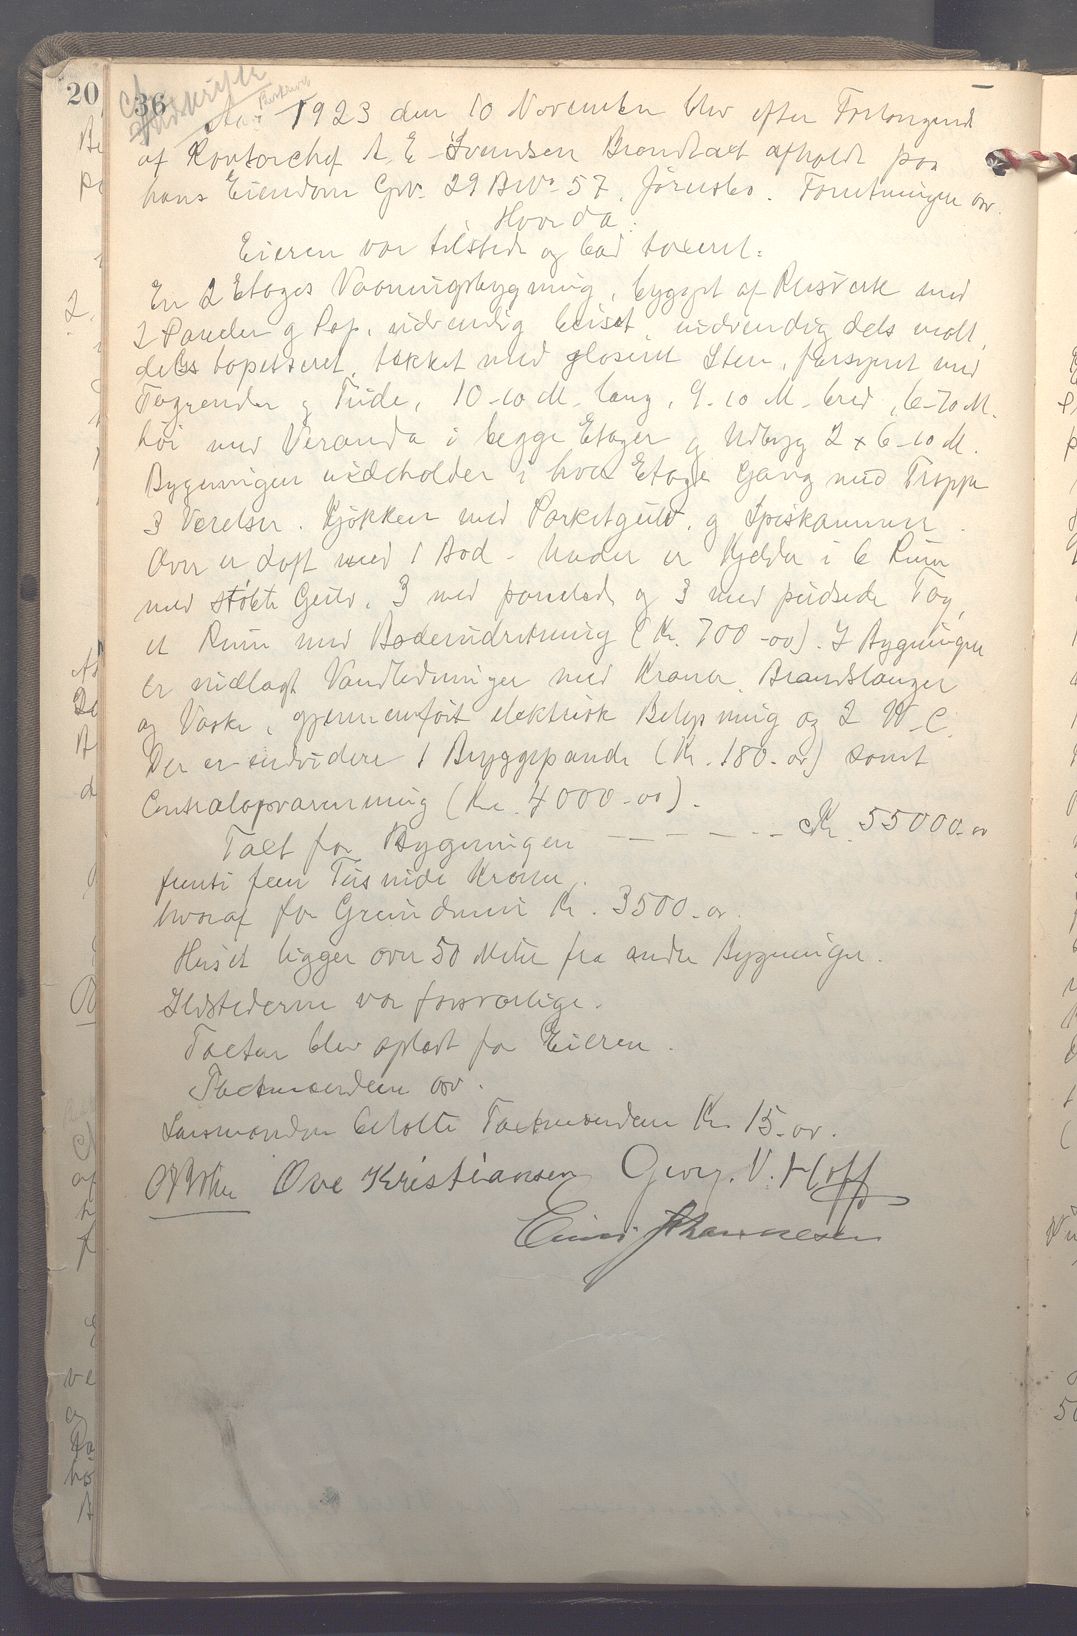 20
36
Aar 1923 den 10 November blev efter Forlangende
af Kontorchef A. E. Svendsen Brandtaxt afholdt paa
hans Eiendom Gr.No. 29 B.No. 57, Jørnsbo. Forretningen
Hvorda:
Eieren var tilstede og bad taxeret:
En 2 Etages Vaaningsbygning, bygget af Reisverk med
2 Paneler og Pap, udvendig beiset, indvendig dels malt,
dels tapetseret, tækket med glaseret Sten, forsynet med
Tagrender og Tude, 10-10 M. lang, 9-10 M. bred, 6-70 M.
høi med Veranda i begge Etager og Udbyg 2 x 6-10 M.
Bygningen indeholder i hver Etage Gang med Trappe
3 Værelser. Kjøkken med Parketgulv og Spiskammer.
Over er Loft med 1 Bod. Under er Kjelder i 6 Rum
med støbte Gulv, 3 med panelede og 3 med pudsede Tag,
et Rum med Badeindretning (Kr. 700-00). I Bygningen
er indlagt Vandledninger med Kraner, Brandslanger
og Vaske, gjennemført elektrisk Belysning og 2 W.C.
Der er endvidere 1 Bryggepande (Kr. 180-00) samt
Centralopvarmning (Kr. 4000-00).
Taxt for Bygningen — — — — — Kr. 55000-00
femti fem Tusinde Kroner.
hvoraf for Grundmur Kr. 3500-00.
Huset ligger over 50 Meter fra andre Bygninger.
Ildstederne var forsvarlige.
Taxten blev oplæst for Eieren.
Taxtmændene
Lensmanden betalte Taxtmændene Kr. 15-00.
Ove Kristiansen Georg. V. Hoff
Einar Johannesen